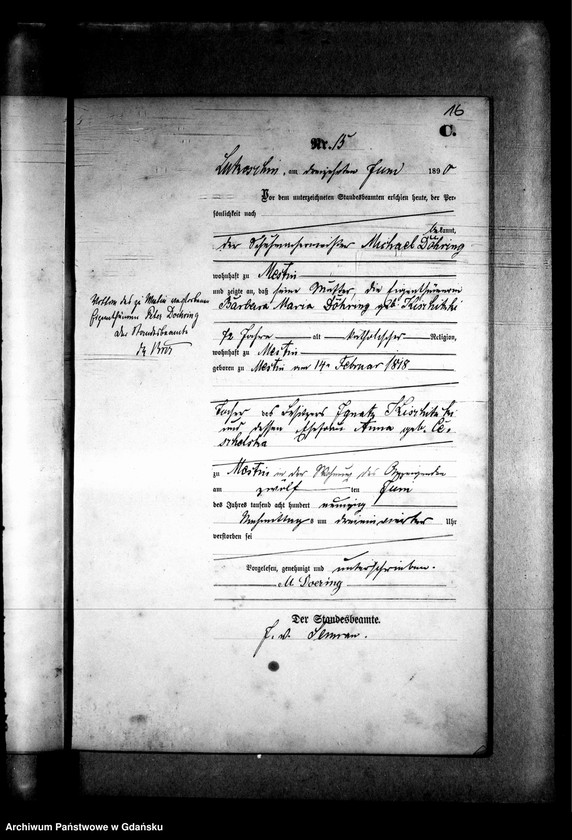 16
C.
Nr. 15
Lukoschin, am dreizehnten Juni 1890
Vor dem unterzeichneten Standesbeamten erschien heute, der Per-
sönlichkeit nach
bekannt,
der Schuhmachermeister Michael Döhring
wohnhaft zu Mestin
und zeigte an, daß seine Mutter, die Eigenthümerin
Barbara Maria Döhring geb.
72 Jahre alt katholischer Religion,
wohnhaft zu Mestin
geboren zu Mestin am 14. Februar 1818
Tochter des Besitzers Ignatz
und dessen Ehefrau Anna geb.
zu Mestin in der Wohnung des
am zwölf ten Juni
des Jahres tausend acht hundert neunzig
Nachmittag um Uhr
verstorben sei
Vorgelesen, genehmigt und unterschrieben.
M Doering
Der Standesbeamte.
Wittwe des zu Mestin verstorbenen
Eigenthümers Döhring
der Standesbeamte
Archiwum Państwowe w Gdańsku